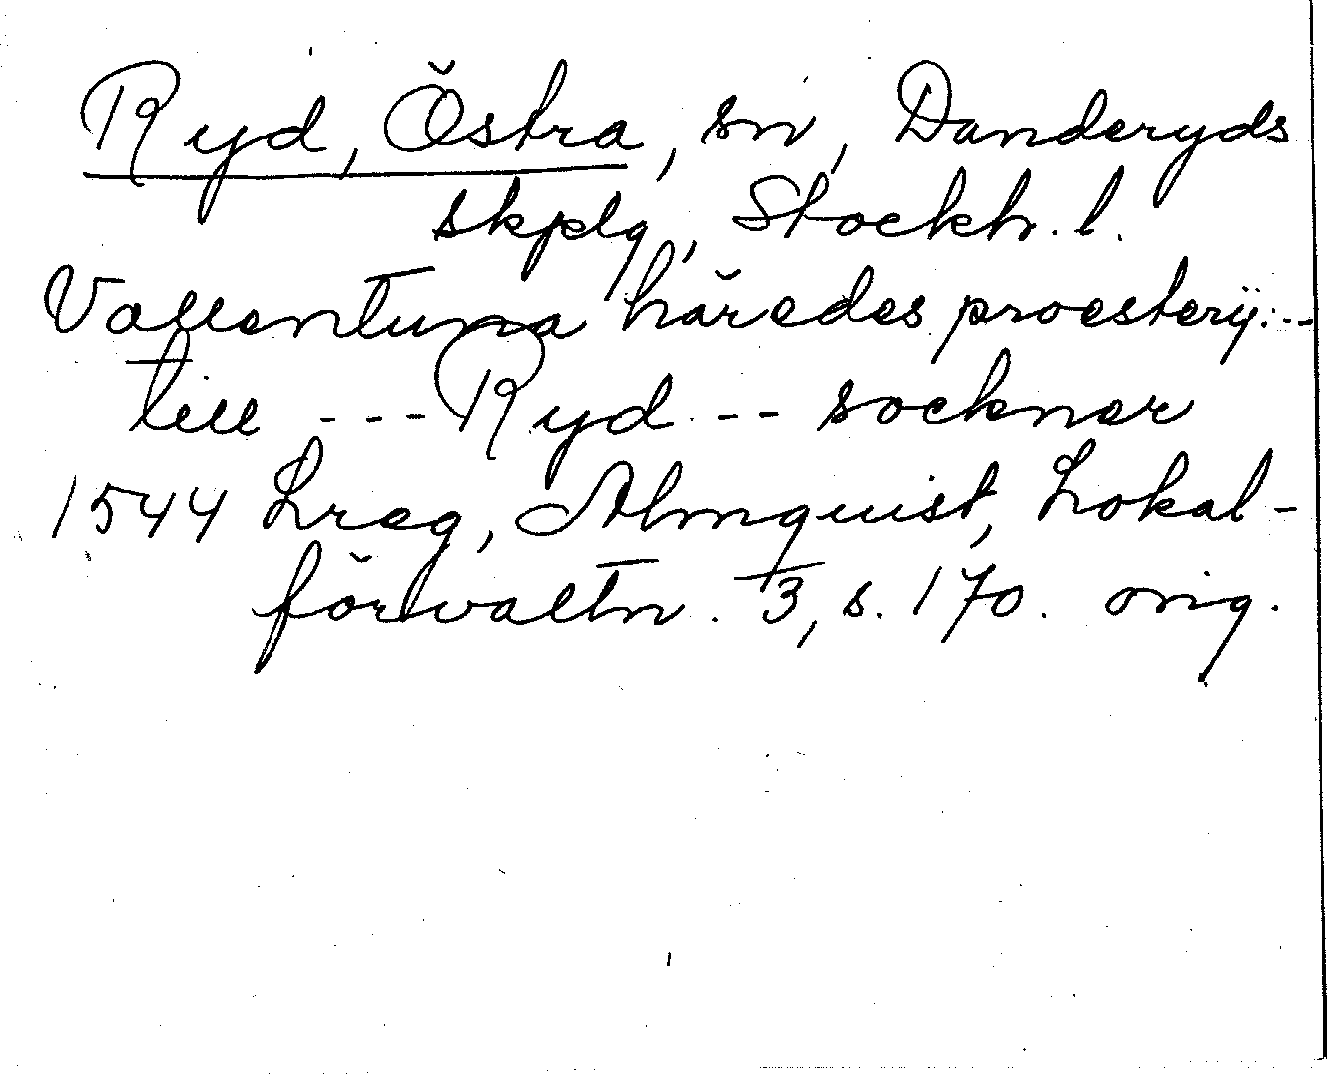 Ryd, Östra, sn, Danderyds
skplg, Stockh. l.
Vallentuna häredes proesterÿ: --
till --- Ryd -- socknar
1544 Lreg, Almquist, Lokal-
förvaltn. 3, s. 170. orig.